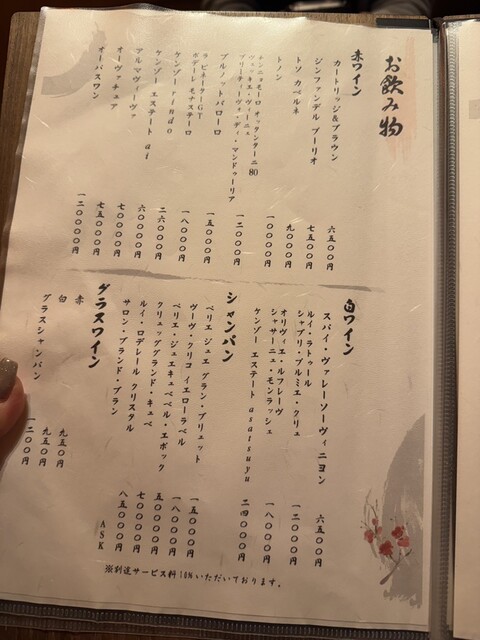 お飲み物
赤ワイン
カートリッジ&ブラウン
六五〇〇円
ジンファンデル プーリオ
七五〇〇円
トソ カベルネ
九〇〇〇円
トノン
一〇〇〇〇円
ドンニョモーロ オッタンターニ 80
ヴェッキエ・ヴィーニェ
プリーティーヴォ・ディ・マンドゥーリア
一二〇〇〇円
ブルノットバローロ
一五〇〇〇円
ラ ピネータ—GT
ボデーレ モナステーロ
一八〇〇〇円
ケンゾー rindo
二六〇〇〇円
ケンゾー エステート ai
六〇〇〇〇円
アルマヴィーヴァ
七〇〇〇〇円
オーヴァチュア
七五〇〇〇円
オーパスワン
一二〇〇〇〇円
白ワイン
スパイ・ヴァレーソーヴィニヨン
六五〇〇円
ルイ・ラトゥール
シャブリ・プルミエ・クリュ
一二〇〇〇円
オリヴィエ・ルフレーヴ
シャサーニュ・モンラッシェ
一八〇〇〇円
ケンゾー エステート asatsuyu
二四〇〇〇円
シャンパン
ペリエ ジュエ グラン・ブリュット
一五〇〇〇円
ヴーヴ・クリコ イエローラベル
一八〇〇〇円
ペリエ・ジュエキュベベル・エポック
五〇〇〇〇円
クリュッググランド・キュベ
七〇〇〇〇円
ルイ・ロデレール クリスタル
八五〇〇〇円
サロン・ブランド・ブラン
ASK
グラスワイン
赤
九五〇円
白
九五〇円
グラスシャンパン
一二〇〇円
※別途サービス料10%いただいております。